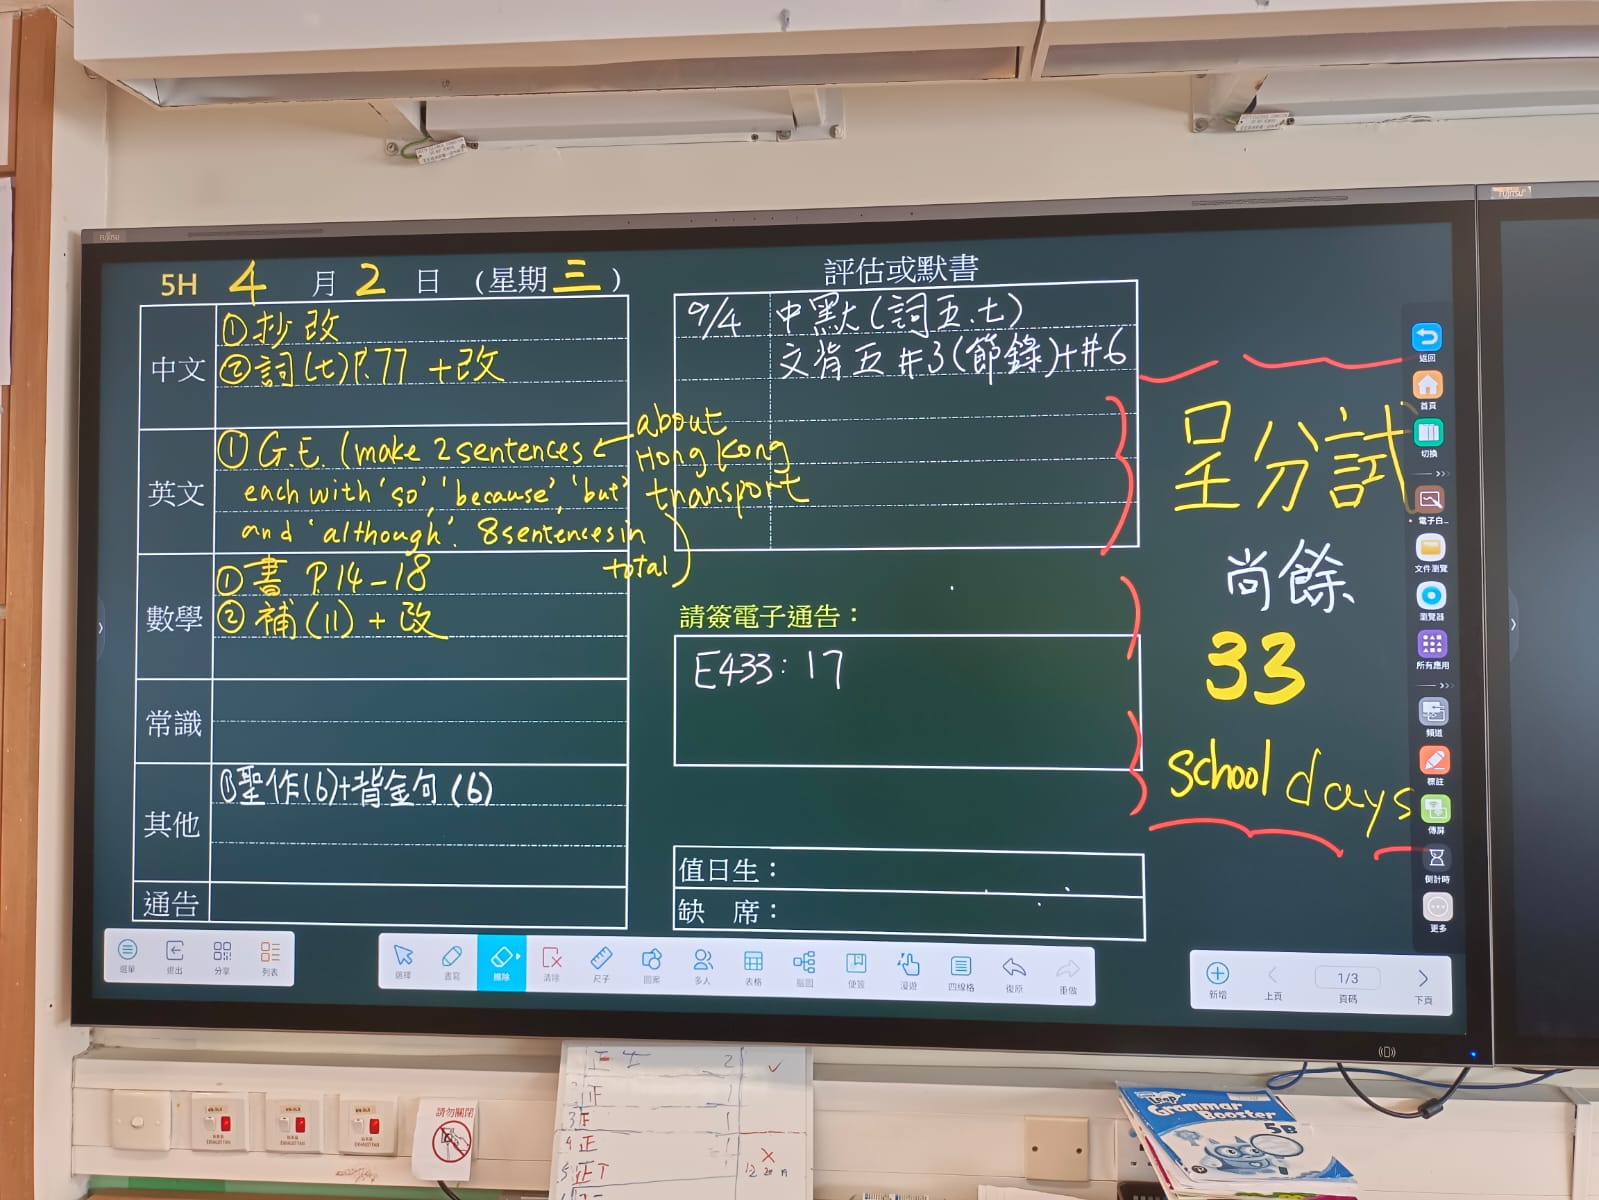 FUJITSU
FUJITSU
5H 4 月 2 日 (星期 三 )
中文
①抄改
②詞(七)P.77 +改
英文
① G.E. (make 2 sentences ← about Hong Kong transport
each with 'so', 'because', 'but'
and 'although'. 8 sentences in total)
數學
①書 P.14-18
②補(11) + 改
常識
其他
①聖作(6)+背金句(6)
通告
評估或默書
9/4 中默(詞五.七)
文背五#3(節錄)+#6
請簽電子通告：
E433: 17
值日生：
缺 席：
呈分試
尚餘
33
school days
返回
首頁
切換
電子白...
文件瀏覽
瀏覽器
所有應用
頻道
標註
傳屏
倒計時
更多
選單 退出 分享 列表
選擇 書寫 擦除 清除 尺子 圖案 多人 表格 腦圖 便簽 漫遊 四線格 復原 重做
新增 上頁 1/3 頁碼 下頁
EXHAUST FAN
EXHAUST FAN
EXHAUST FAN
請勿關閉
正 2
正 1
3 正 1
4 正
5 正
Grammar
Booster
5B